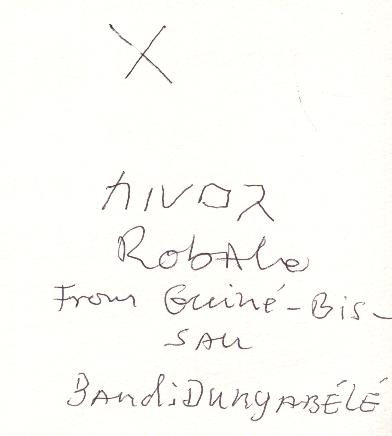 X
カルロス
RobAlo
From Guiné-Bis-
SAU
BAndiDUngABÉLÉ